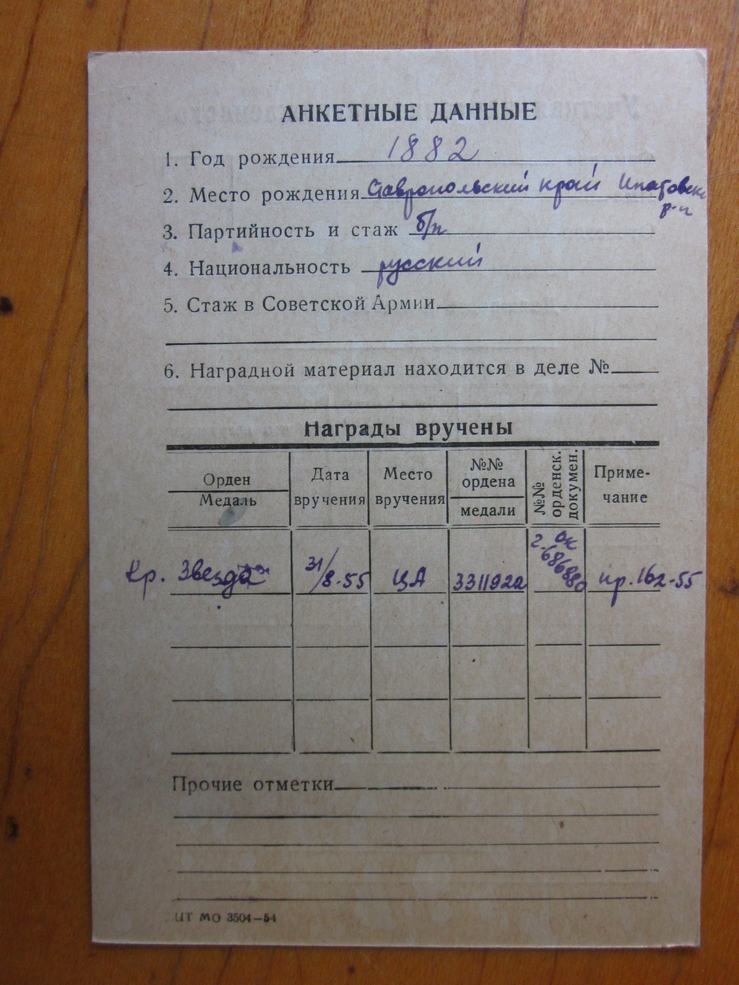 АНКЕТНЫЕ ДАННЫЕ
1. Год рождения 1882
2. Место рождения Ставропольский край Ипатовски
р-н
3. Партийность и стаж б/п
4. Национальность русский
5. Стаж в Советской Армии
6. Наградной материал находится в деле №
Награды вручены
Орден
Медаль
Дата вручения
Место вручения
№№ ордена
медали
№№ орденск. докумен.
Приме-
чание
Кр. Звезда 31/8-55 ЦА 3311922 686880 пр. 162-55
Прочие отметки
ЦТ МО 3504—54